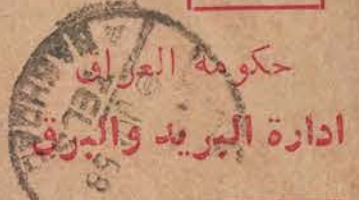 حكومة العراق
ادارة البريد والبرق